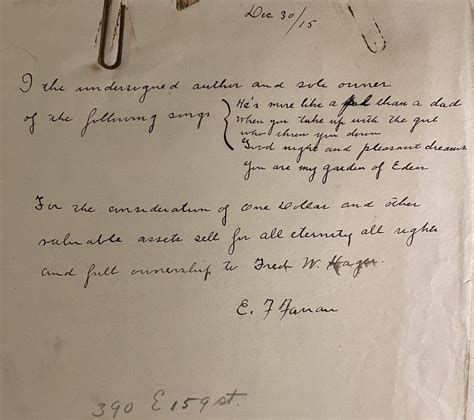 Dec 30/15
I the undersigned author and sole owner
of the following songs
He's more like a pal than a dad
When you take up with the girl
who threw you down
Good night and pleasant dreams
You are my garden of Eden
For the consideration of One Dollar and other
valuable assets sell for all eternity all rights
and full ownership to Fred W. Hager.
E. F Farran
390 E 159 st.